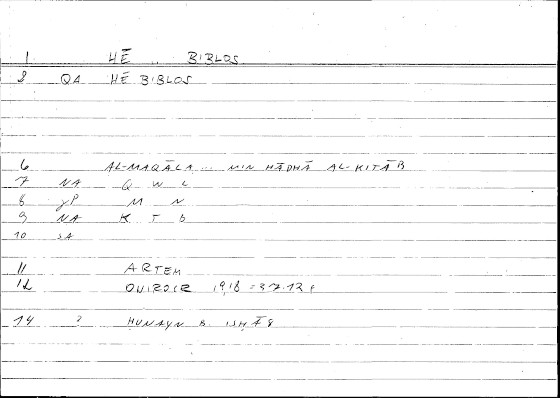 1 HĒ .. BIBLOS
2 QA HĒ BIBLOS
6 AL-MAQĀLA ... MIN HĀDHĀ AL-KITĀB
7 NA Q W L
8 M N
9 NA K T b
10 SA
11 ARTEM
12 ONIROCR 1,9,18 =
14 ? ḤUNAYN B. ISḤĀQ